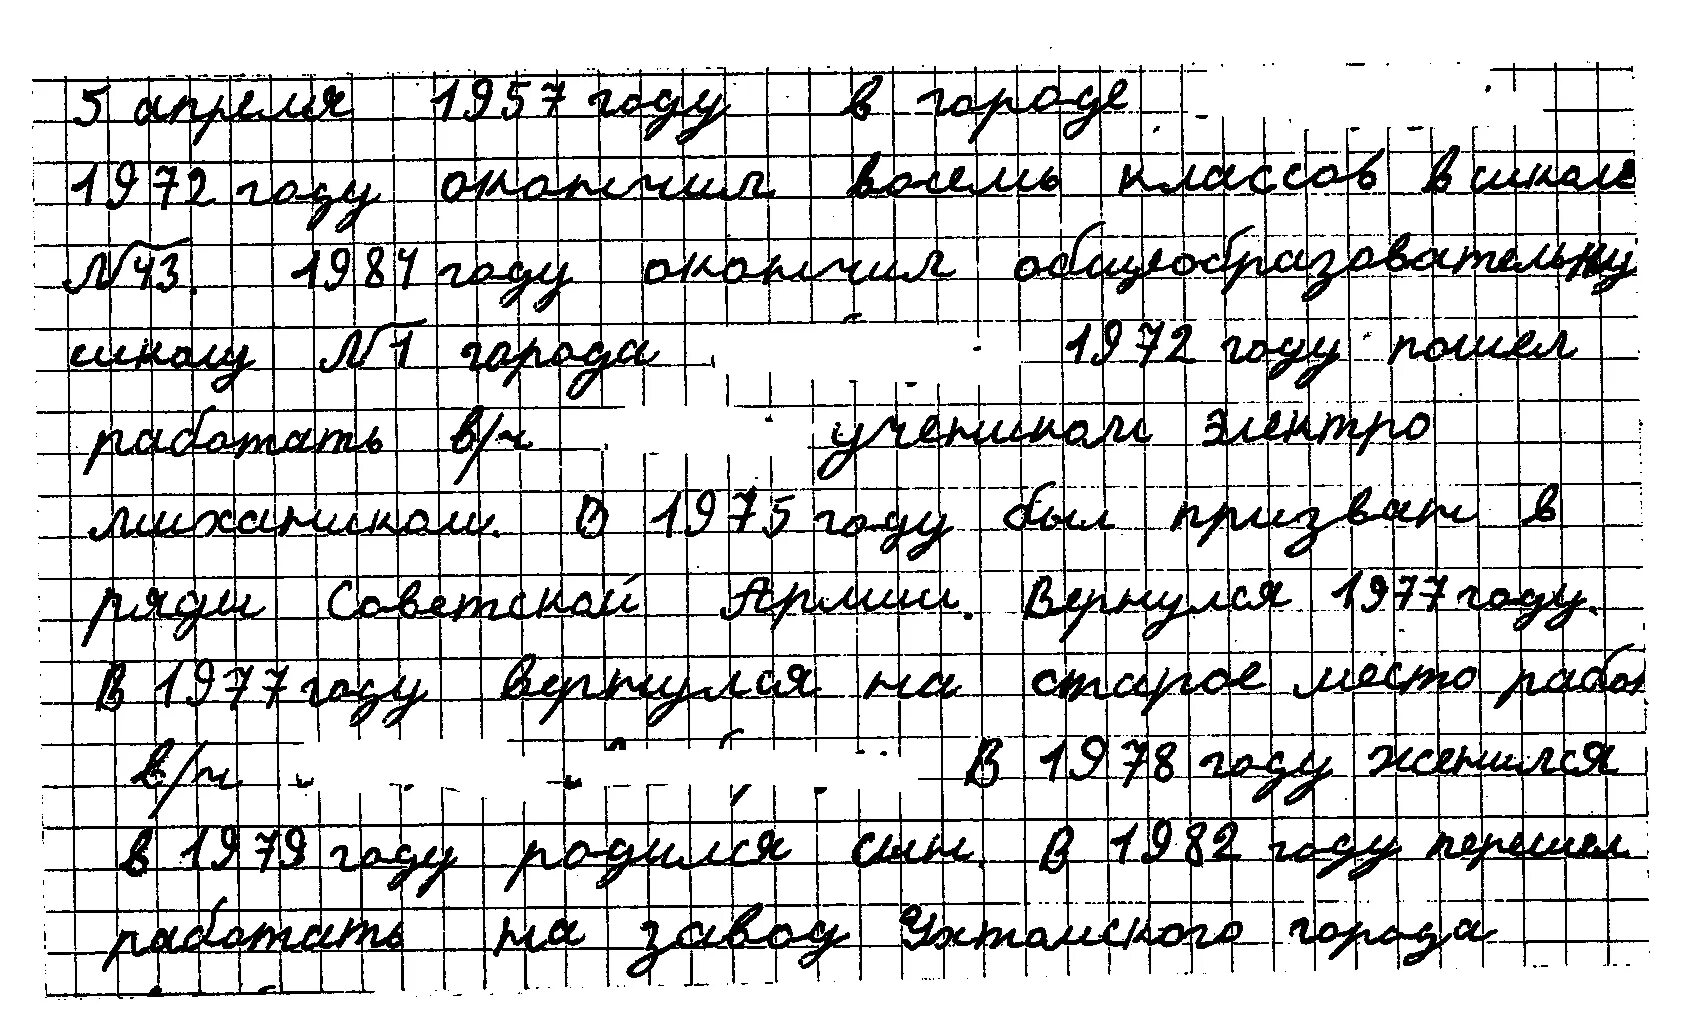 5 апреля 1957 году в городе
1972 году окончил восемь классов в школе
№43. 1984 году окончил общеобразовательну
школу №1 города 1972 году пошел
работать в/ч учеником электро
михаником. В 1975 году был призван в
ряди Советской Армии. Вернулся 1977 году.
В 1977 году вернулся на старое место работ
в/ч В 1978 году женился
в 1979 году родился сын. В 1982 году перешел
работать на завод Ухтомского города